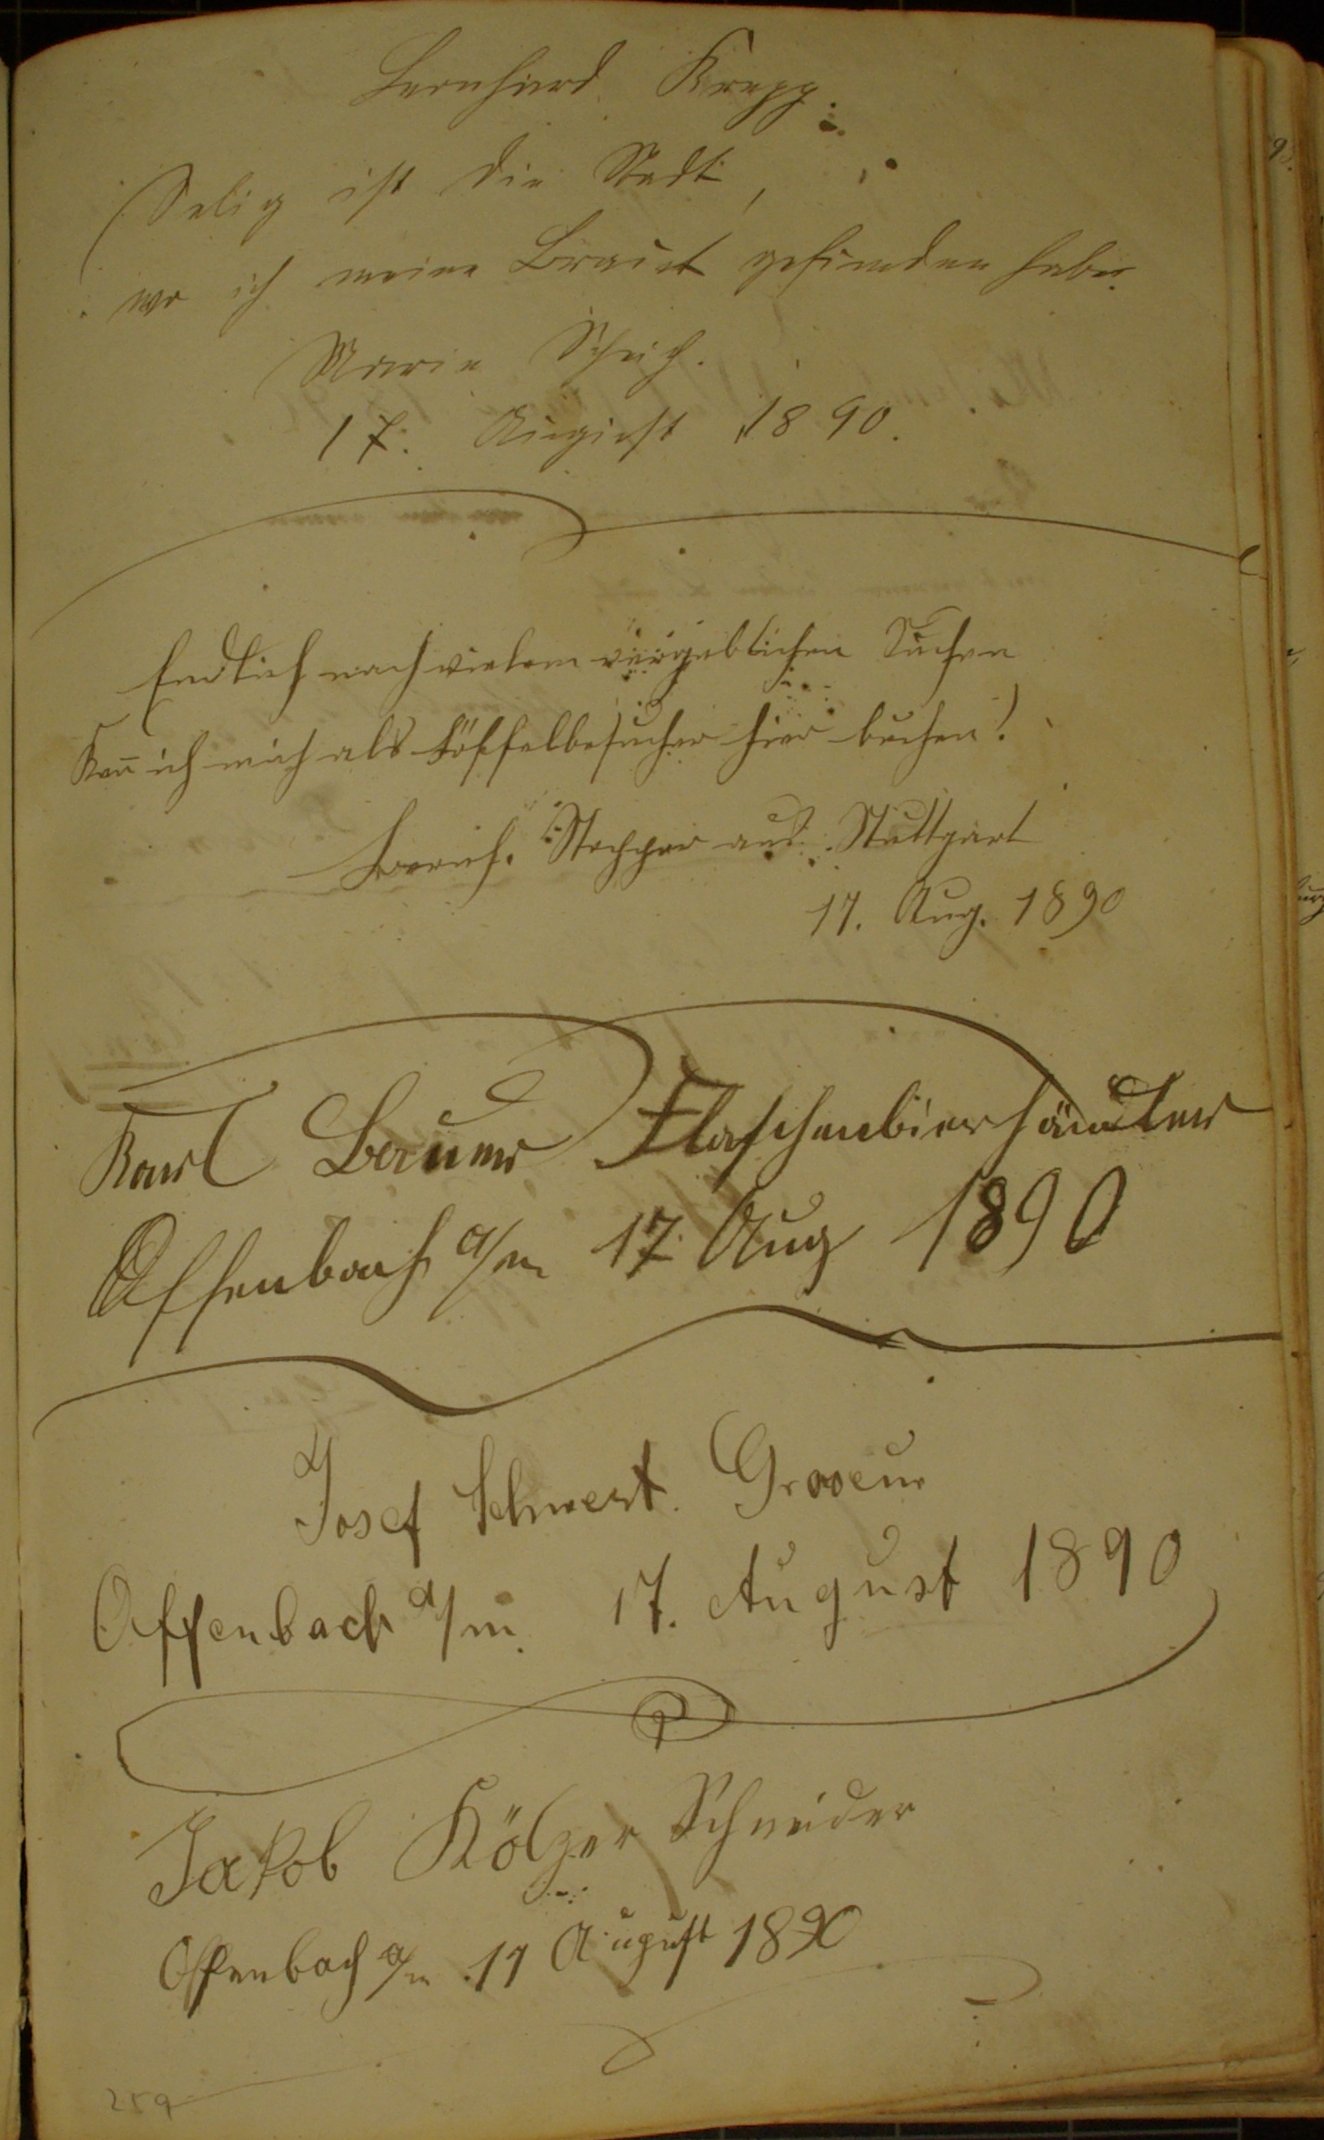 Bernhard Krepp.
Selig ist die Stadt,
wo ich meine Braut gefunden habe.
Marie
17. August 1890.
Endlich nach vielem vergeblichen Suchen
Kann ich mich als Löffelbesucher hier buchen!
aus Stuttgart
17. Aug. 1890
Karl Bauer Flaschenbierhändler
Offenbach a/m 17 Aug 1890
Josef Schwert. Graveur
Offenbach a/m. 17. August 1890
Jakob Kölzer Schneider
Offenbach a/m 17 August 1890
259